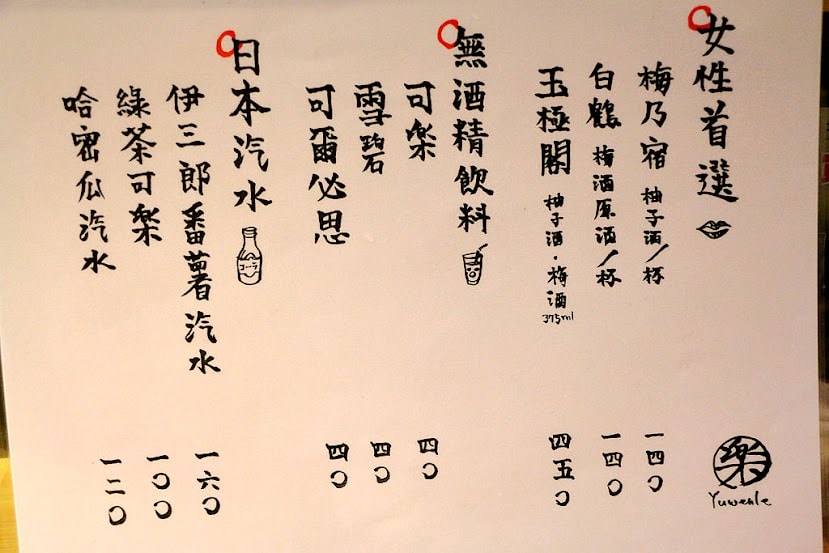 女性首選
梅乃宿 柚子酒/杯 一四〇
白鶴 梅酒原酒/杯 一四〇
玉極閣 柚子酒・梅酒 375ml 四五〇
無酒精飲料
可樂 四〇
雪碧 四〇
可爾必思 四〇
日本汽水
コーラ
伊三郎番薯汽水 一六〇
綠茶可樂 一〇〇
哈密瓜汽水 一二〇
樂
Yuwenle